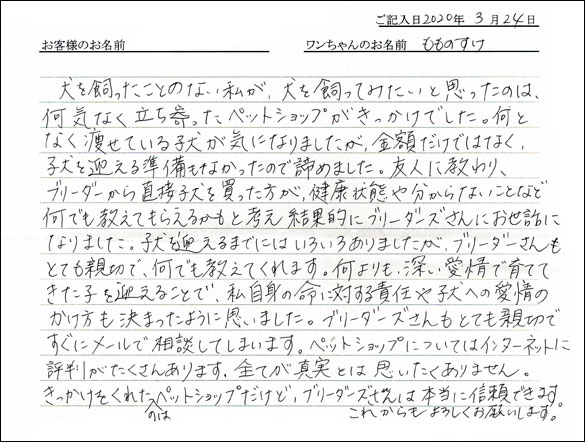 ご記入日2020年 3月24日
お客様のお名前 ワンちゃんのお名前 もものすけ
犬を飼ったことのない私が、犬を飼ってみたいと思ったのは、
何気なく立ち寄ったペットショップがきっかけでした。何と
なく痩せている子犬が気になりましたが、金額だけではなく、
子犬を迎える準備もなかったので諦めました。友人に教わり、
ブリーダーから直接子犬を買った方が、健康状態や分からないことなど
何でも教えてもらえるかもと考え 結果的にブリーダーズさんにお世話に
なりました。子犬を迎えるまでにはいろいろありましたが、ブリーダーさんも
とても親切で、何でも教えてくれます。何よりも、深い愛情で育てて
きた子を迎えることで、私自身の命に対する責任や子犬への愛情の
かけ方も決まったように思いました。ブリーダーズさんもとても親切で
すぐにメールで相談してしまいます。ペットショップについてはインターネットに
評判がたくさんあります、全てが真実とは思いたくありません。
きっかけをくれたのはペットショップだけど、ブリーダーズさんは本当に信頼できます。
これからもよろしくお願いします。